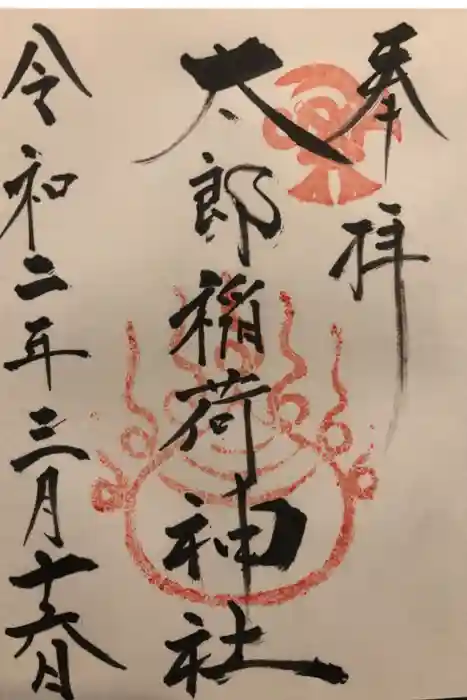 奉拝
太郎稲荷神社
令和二年三月十六日